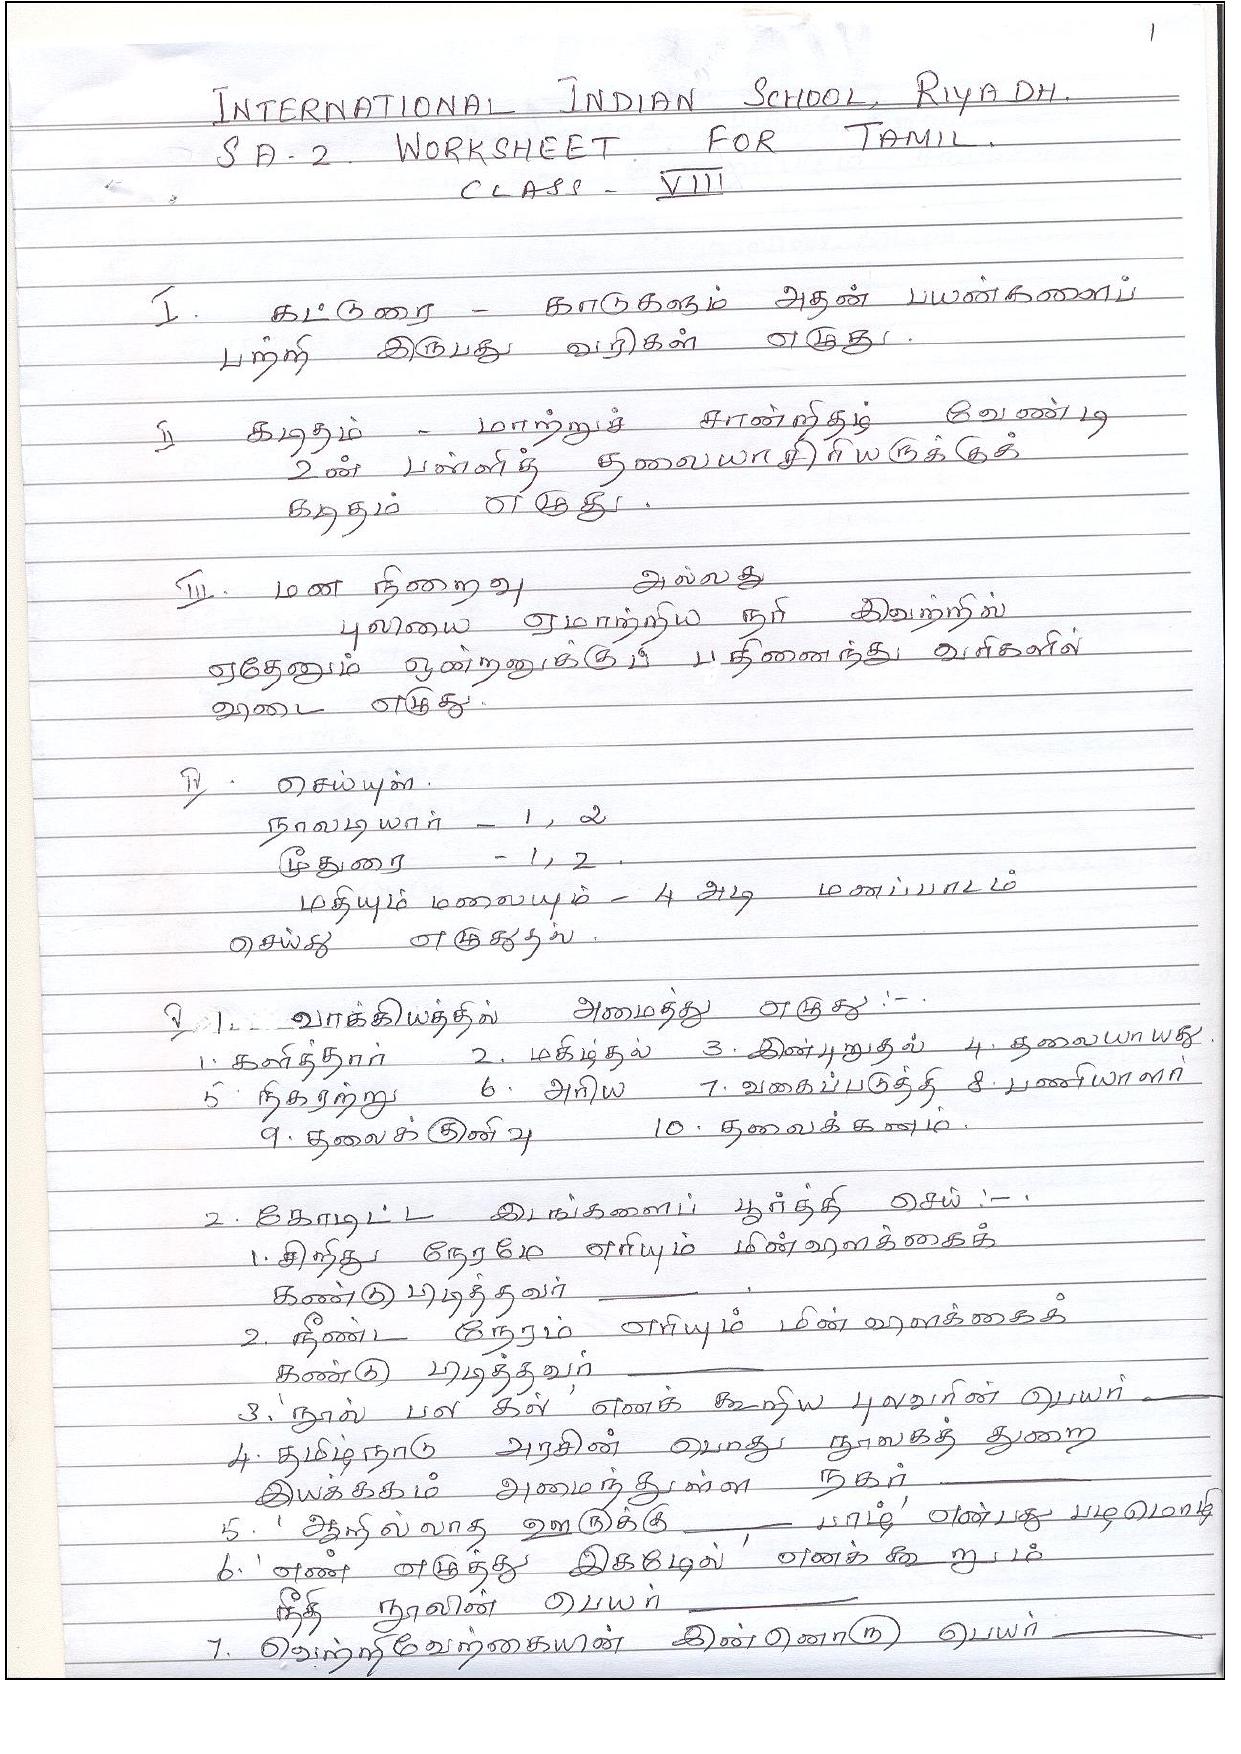 1
INTERNATIONAL INDIAN SCHOOL, RIYADH.
SA-2. WORKSHEET FOR TAMIL.
CLASS - VIII
I. கட்டுரை - காடுகளும் அதன் பயன்களைப்
பற்றி இருபது வரிகள் எழுது.
II கடிதம் - மாற்றுச் சான்றிதழ் வேண்டி
உன் பள்ளித் தலையாசிரியருக்குக்
கடிதம் எழுது.
III. மன நிறைவு அல்லது
புலியை ஏமாற்றிய நரி இவற்றில்
ஏதேனும் ஒன்றனுக்குப் பதினைந்து வரிகளில்
விடை எழுது.
IV. செய்யுள்.
நாலடியார் - 1, 2
மூதுரை - 1, 2.
மதியும் மலையும் - 4 அடி மனப்பாடம்
செய்து எழுதுதல்.
V 1. வாக்கியத்தில் அமைத்து எழுது:-.
1. களித்தார் 2. மகிழ்தல் 3. இன்புறுதல் 4. தலையாயது.
5 நிகரற்று 6. அரிய 7. வகைப்படுத்தி 8. பணியாளர்
9. தலைக்குனிவு 10. தலைக்கனம்.
2. கோடிட்ட இடங்களைப் பூர்த்தி செய்:-.
1. சிறிது நேரமே எரியும் மின்விளக்கைக்
கண்டுபிடித்தவர் ______.
2. நீண்ட நேரம் எரியும் மின்விளக்கைக்
கண்டுபிடித்தவர் ______
3. 'நூல் பல கல்' எனக் கூறிய புலவரின் பெயர் ______
4. தமிழ்நாடு அரசின் பொது நூலகத் துறை
இயக்ககம் அமைந்துள்ள நகர் ______
5. 'ஆறில்லாத ஊருக்கு ______ பாழ்' என்பது பழமொழி
6. 'எண் எழுத்து இகழேல்' எனக் கூறும்
நீதி நூலின் பெயர் ______
7. வெற்றிவேற்கையின் இன்னொரு பெயர் ______